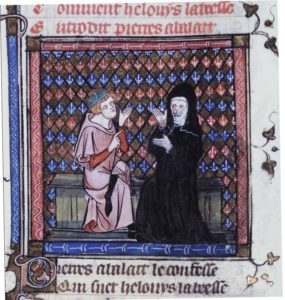 Comment heloys labesse
pierres abalart
Pierres abalart le confesse
Qui suer heloys labesse